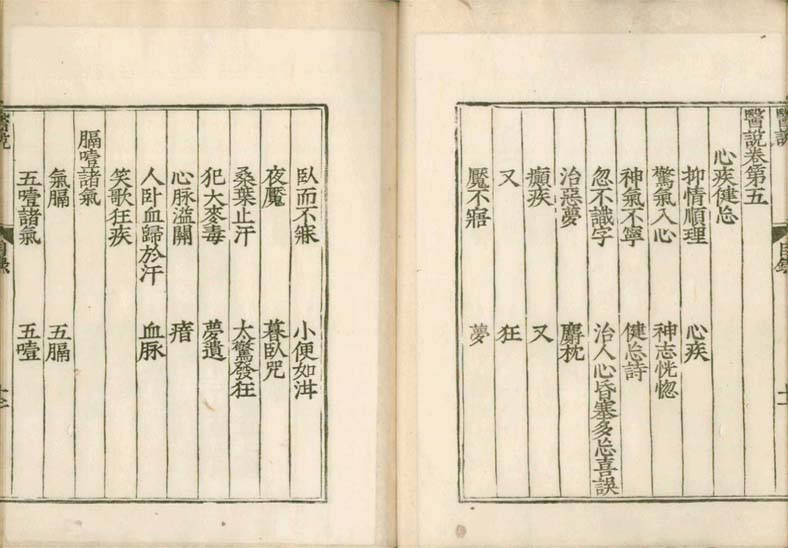 醫說卷第五
心疾健忘
抑情順理　心疾
驚氣入心　神志恍惚
神氣不寧　健忘詩
忽不識字　治人心昏塞多忘喜誤
治惡夢　麝枕
癲疾　又
又　狂
魘不寤　夢
臥而不寐　小便如泔
夜魘　暮臥咒
桑葉止汗　太驚發狂
犯大麥毒　夢遺
心脉溢關　瘖
人卧血歸於汗　血脉
笑歌狂疾
膈噎諸氣
氣膈　五膈
五噎諸氣　五噎